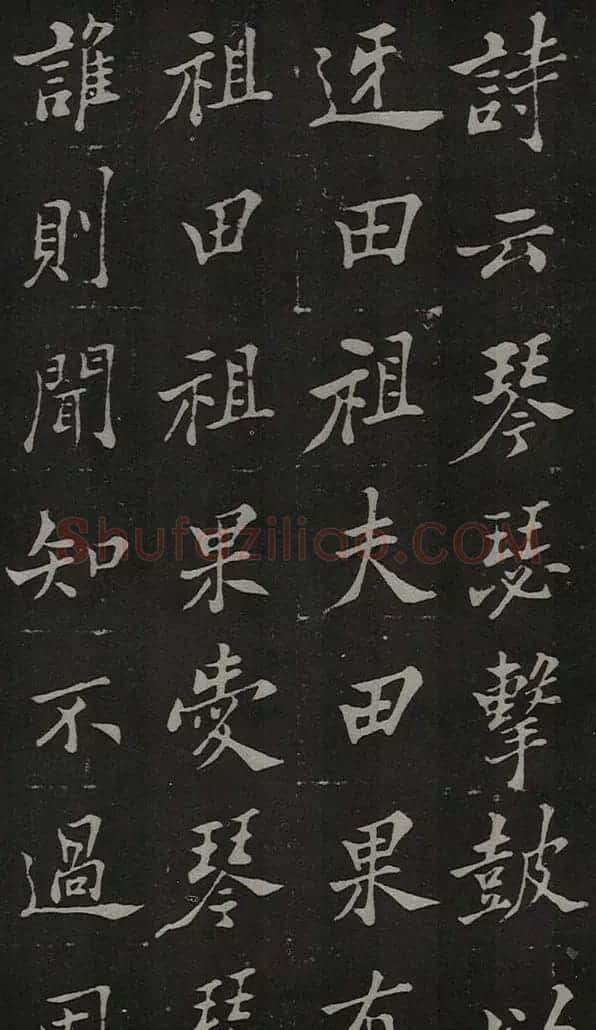 詩云琴瑟擊鼓以
迓田祖夫田果有
祖田祖果愛琴琴
誰則聞知不過因
Shufaziliao.COM